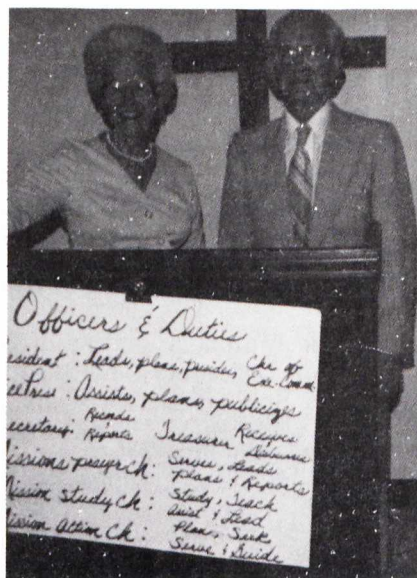 Officers & Duties
esident : Leads, plans, presides, Chr of
Exe. Comm.
ice Pres : Assists, plans, publicizes
ecretary: Records Treasurer Receives
Reports Disburses
issions prayer ch: Serves, Leads
Plans & Reports
ission study ch: Study, Teach
Assist & Lead
ission action ch: Plan, Seek
Serve & Guide